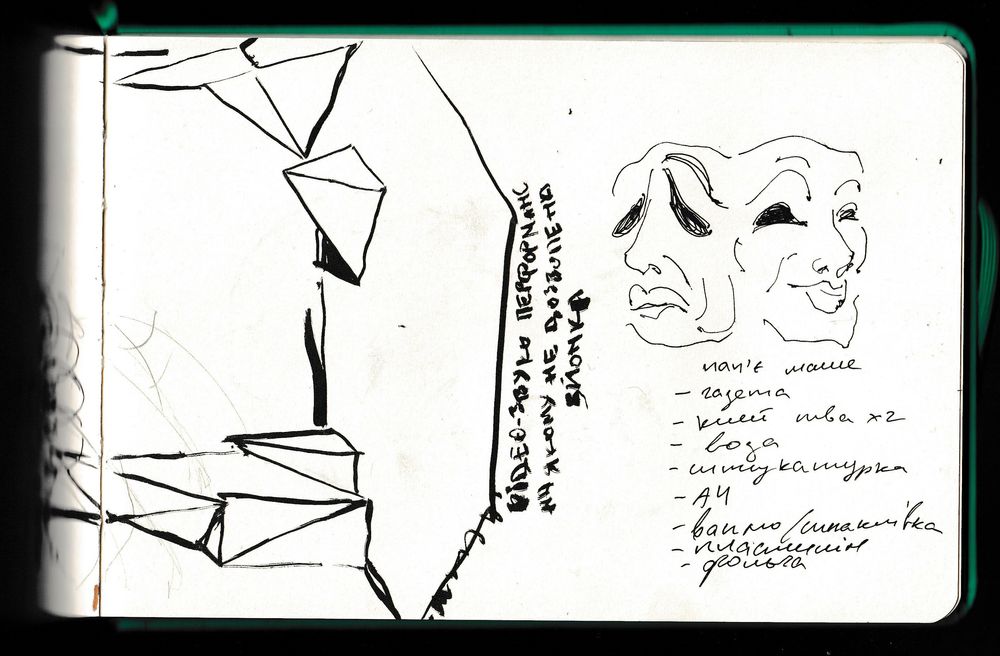 ВІДЕО-ЗВУКО ПЕРФОРМАНС
НА ЯКОМУ НЕ ДОЗВОЛЕНА
ЗЙОМКА
пап'є маше
- газета
- клей пва х2
- вода
- штукатурка
- А4
- вапно/шпаклівка
- пластилін
- фольга